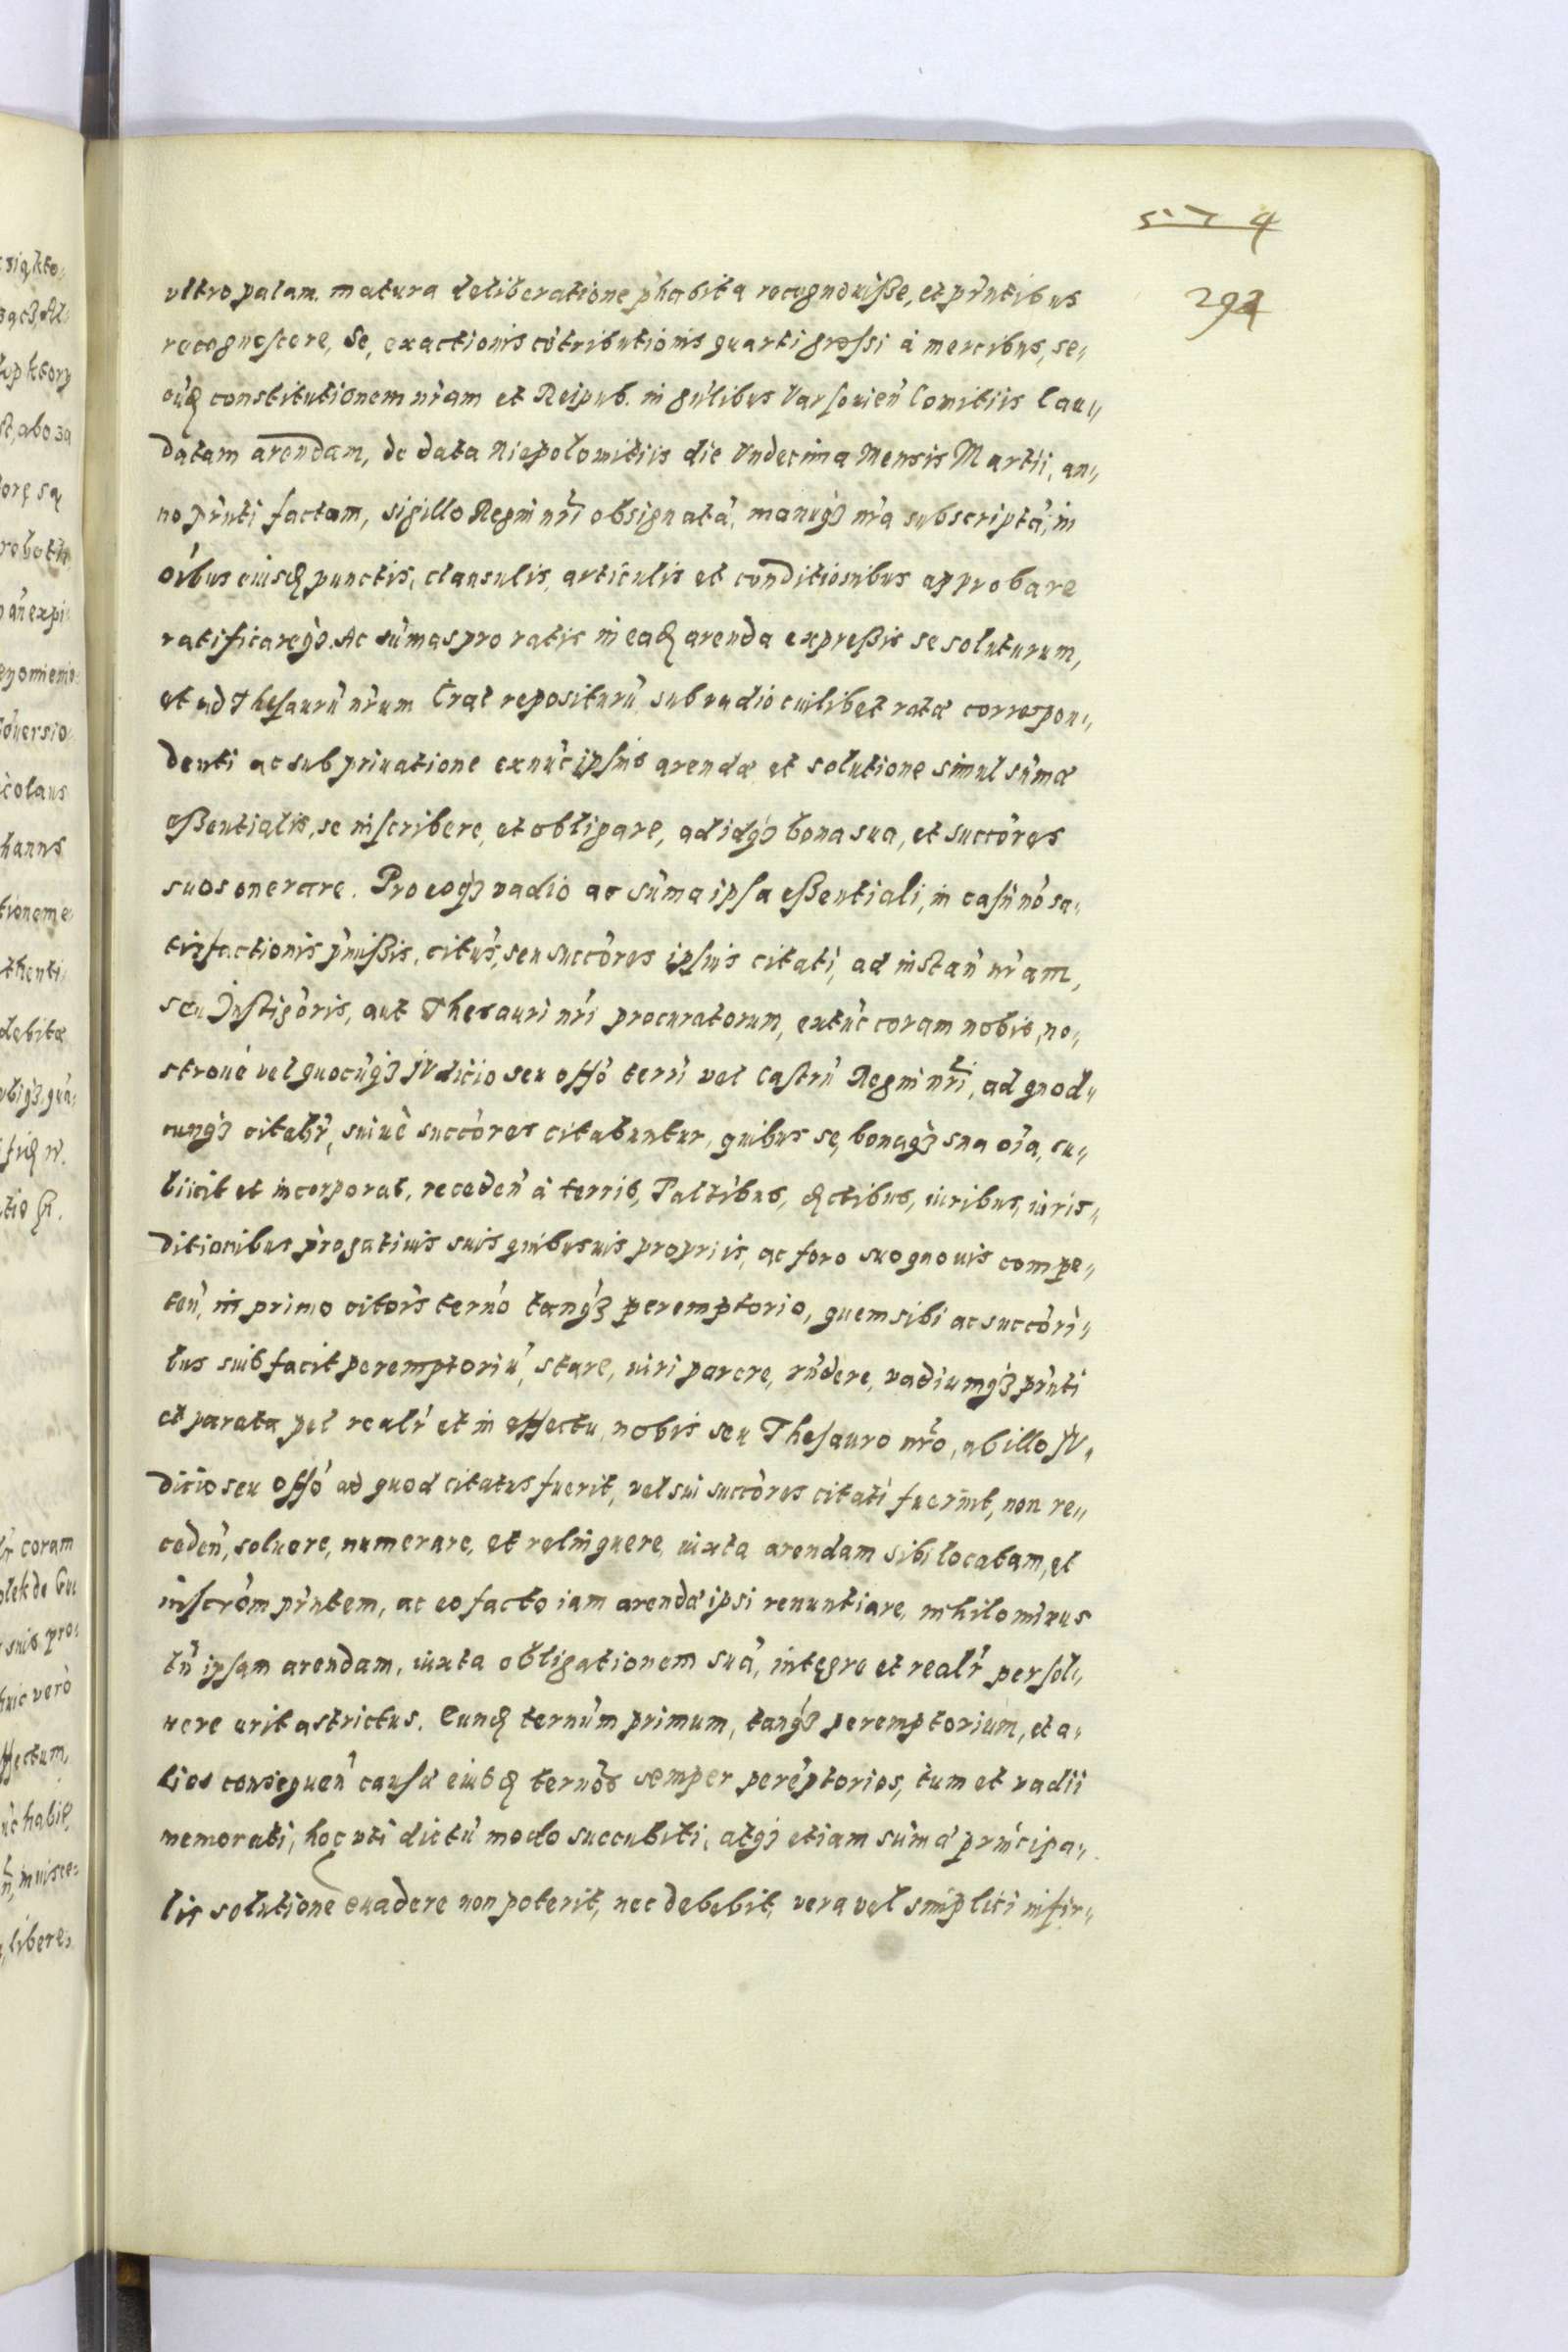 574
292
ultro palam. matura deliberatione p̃habita recognouisse, et pr̃ntibus
recognoscere, Se, exactionis cõtributionis quarti grossi à mercibus, se„
cũdq constitutionem nr̃am et Reipub. in gñlibus Varsouień Comitiis lau„
datam arendam, de data Niepolomitiis die Vndecima Mensis Martii, an„
no pr̃nti factam, sigillo Regni nrĩ obsignatã, manuqꝫ nr̃a subscriptã, in
oĩbus eiusdꝫ punctis, clausulis, articulis et conditionibus approbare
ratificareqꝫ. Ac sũmas pro ratis in eadꝫ arenda expressis se soluturum,
et ad Thesaurũ nr̃um Crac̃ repositurũ sub vadio cuilibet ratæ correspon„
denti ac sub priuatione exnũc ipsius arendæ et solutione simul sũmæ
essentialis, se inscribere, et obligare, ad idqꝫ bona sua, et succõres
suos onerare. Pro eoqꝫ vadio ac sũma ipsa essentiali, in casũ nõ sa„
tisfactionis p̃missis, citũs, seu succõres ipsius citati, ad instań nr̃am,
seu Instigõris, aut Thesauri nrĩ procuratorum, extũc coram nobis, no„
stroue vel quocũqꝫ Iudicio seu offõ terrĩ vel Castrń Regni nrĩ, ad quod„
cunqꝫ citabr̃, suiuè succõres citabuntur, quibus se, bonaqꝫ sua oĩa, su„
biicit et incorporat, receden̄ à terris, Paltĩbus, dꝫctibus, iuribus, iuris„
ditionibus p̃rogatiuis suis quibusuis propriis, ac foro suo quouis compe„
teñ, in primo citõris termõ tanqꝫ peremptorio, quem sibi ac succõri„
bus suis facit peremptoriũ, stare, iuri parere, rñdere, vadiumqꝫ pr̃nti
et parata pec̃ realr̃ et in effectu, nobis seu Thesauro nrõ, ab illo Iu„
dicio seu offõ ad quod citatus fuerit, vel sui succõres citati fuerint, non re„
cedeñ, soluere, numerare, et relinquere, iuxta arendam sibi locatam, et
inscrõm pr̃ntem, ac eo facto iam arendæ ipsi renuntiare, nihilominus
tñ ipsam arendam, iuxta obligationem suã, integre et realr̃ persol„
uere erit astrictus. Eundꝫ termũm primum, tanqꝫ peremptorium, et a„
lios consequeñ causæ eiusdꝫ termõs semper perẽptorios, tum et vadii
memorati, hoc vti dictũ modo succubiti, atqꝫ etiam sũmæ principa„
lis solutionẽ euadere non poterit, nec debebit, vera vel simplici infir„